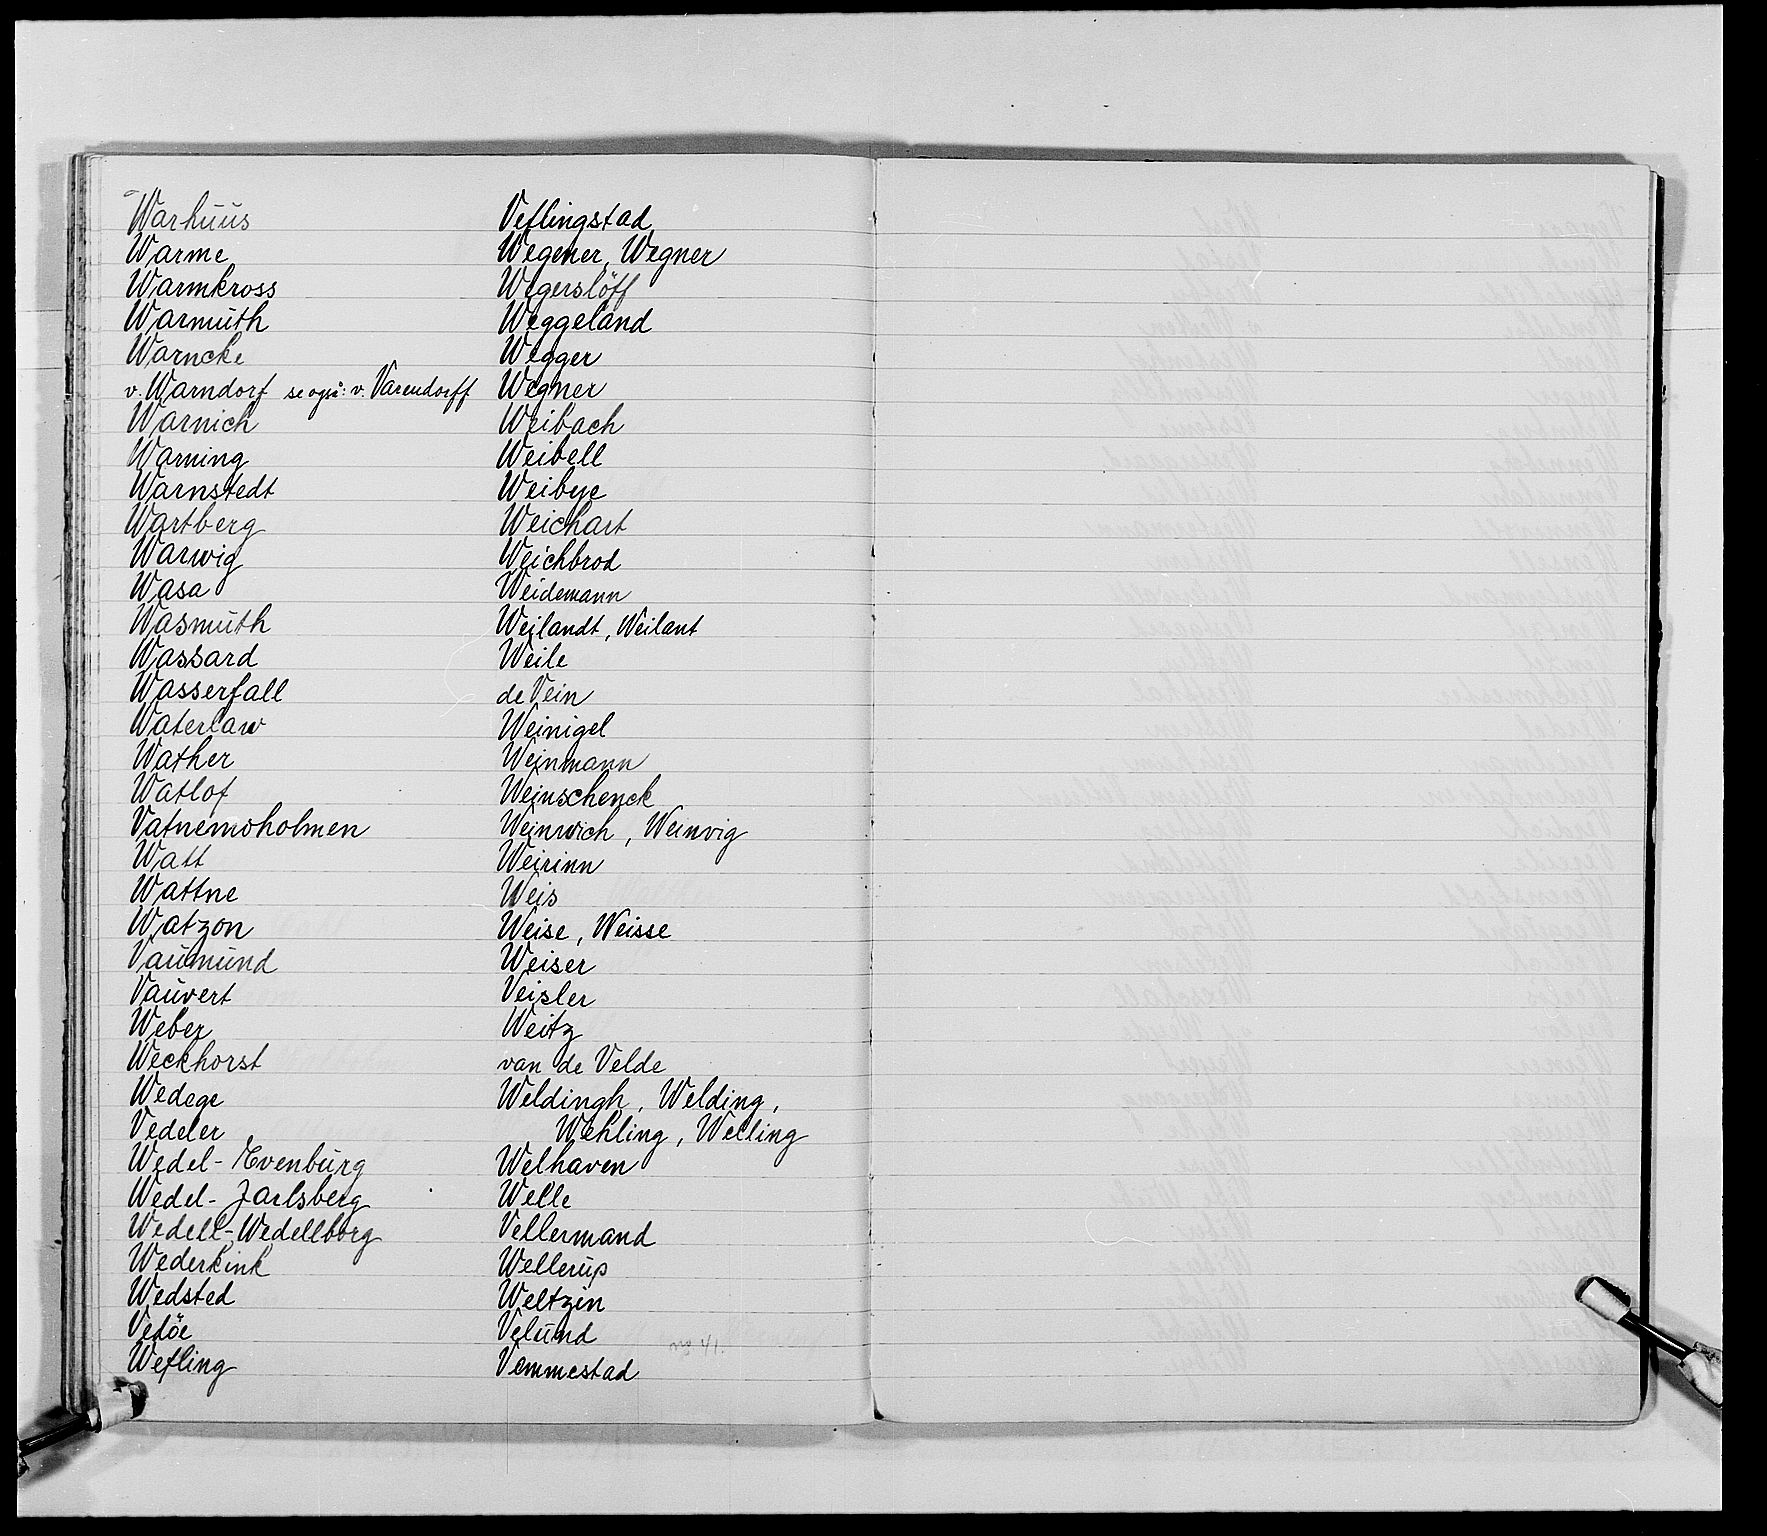 Warhuus
Warme
Warmkross
Warmuth
Warncke
v. Warndorf se også: v. Varendorff
Warnich
Warning
Warnstedt
Wartberg
Warwig
Wasa
Wasmuth
Wassard
Wasserfall
Waterlaw
Wather
Watlof
Vatnemoholmen
Watt
Wattne
Watzon
Vaumund
Vauvert
Weber
Weckhorst
Wedege
Vedeler
Wedel-Evenburg
Wedel-Jarlsberg
Wedell-Wedellborg
Wederkink
Wedsted
Vedöe
Wefling
Veflingstad
Wegener, Wegner
Wegerslöff
Weggeland
Wegger
Wegner
Weibach
Weibell
Weibye
Weichart
Weichbrod
Weidemann
Weilandt, Weilant
Weile
de Vein
Weinigel
Weinmann
Weinschenck
Weinwich, Weinvig
Weirinn
Weis
Weise, Weisse
Weiser
Veisler
Weitz
van de Velde
Weldingh, Welding,
Wehling, Welling
Welhaven
Welle
Vellermand
Wellerup
Weltzin
Velund
Vemmestad